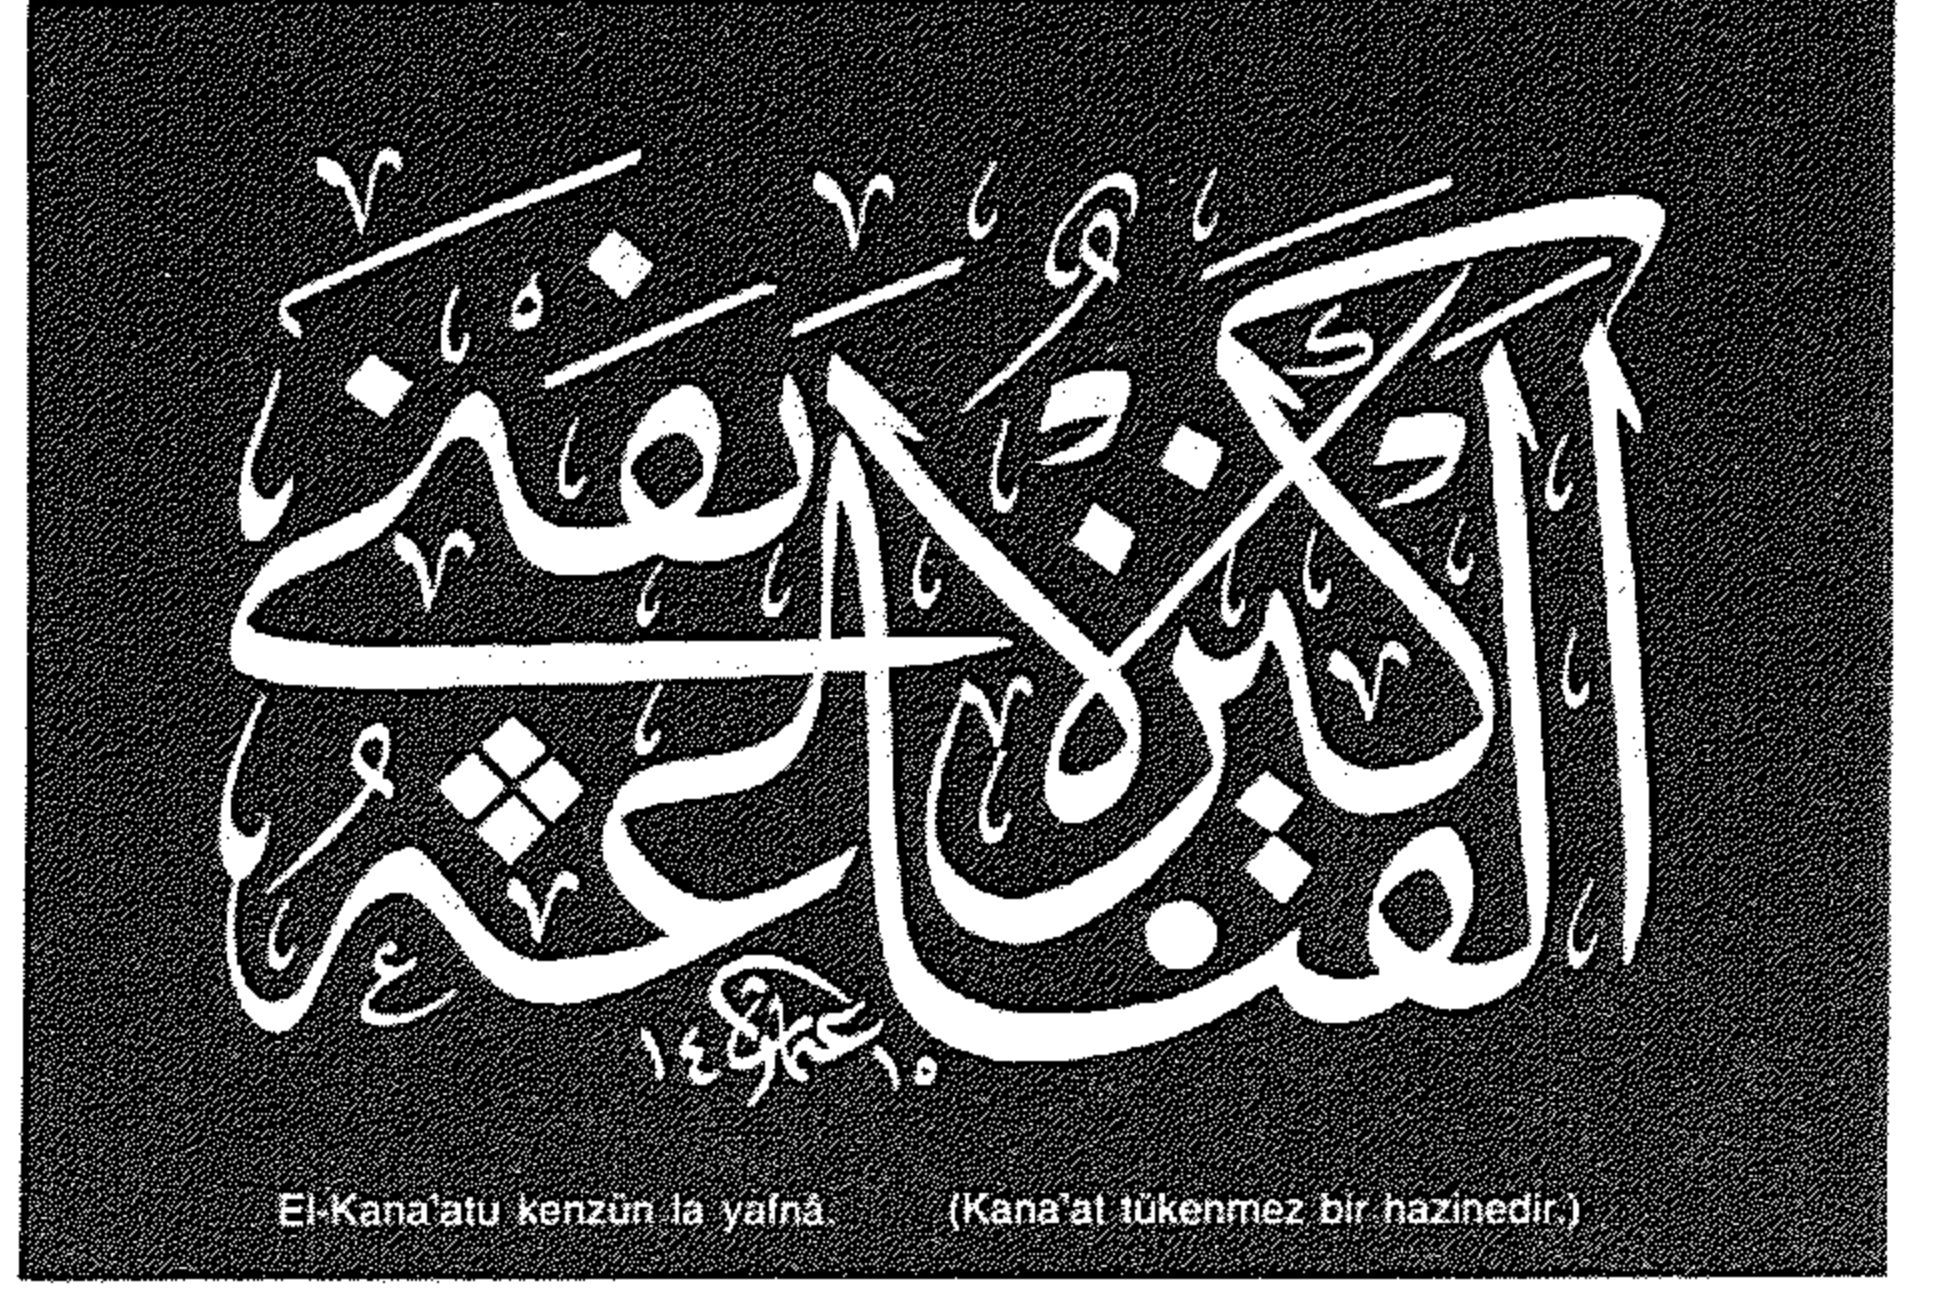 القناعة كنز لا يفنى
١٤١٥
El-Kana'atu kenzün la yafnâ. (Kana'at tükenmez bir hazinedir.)